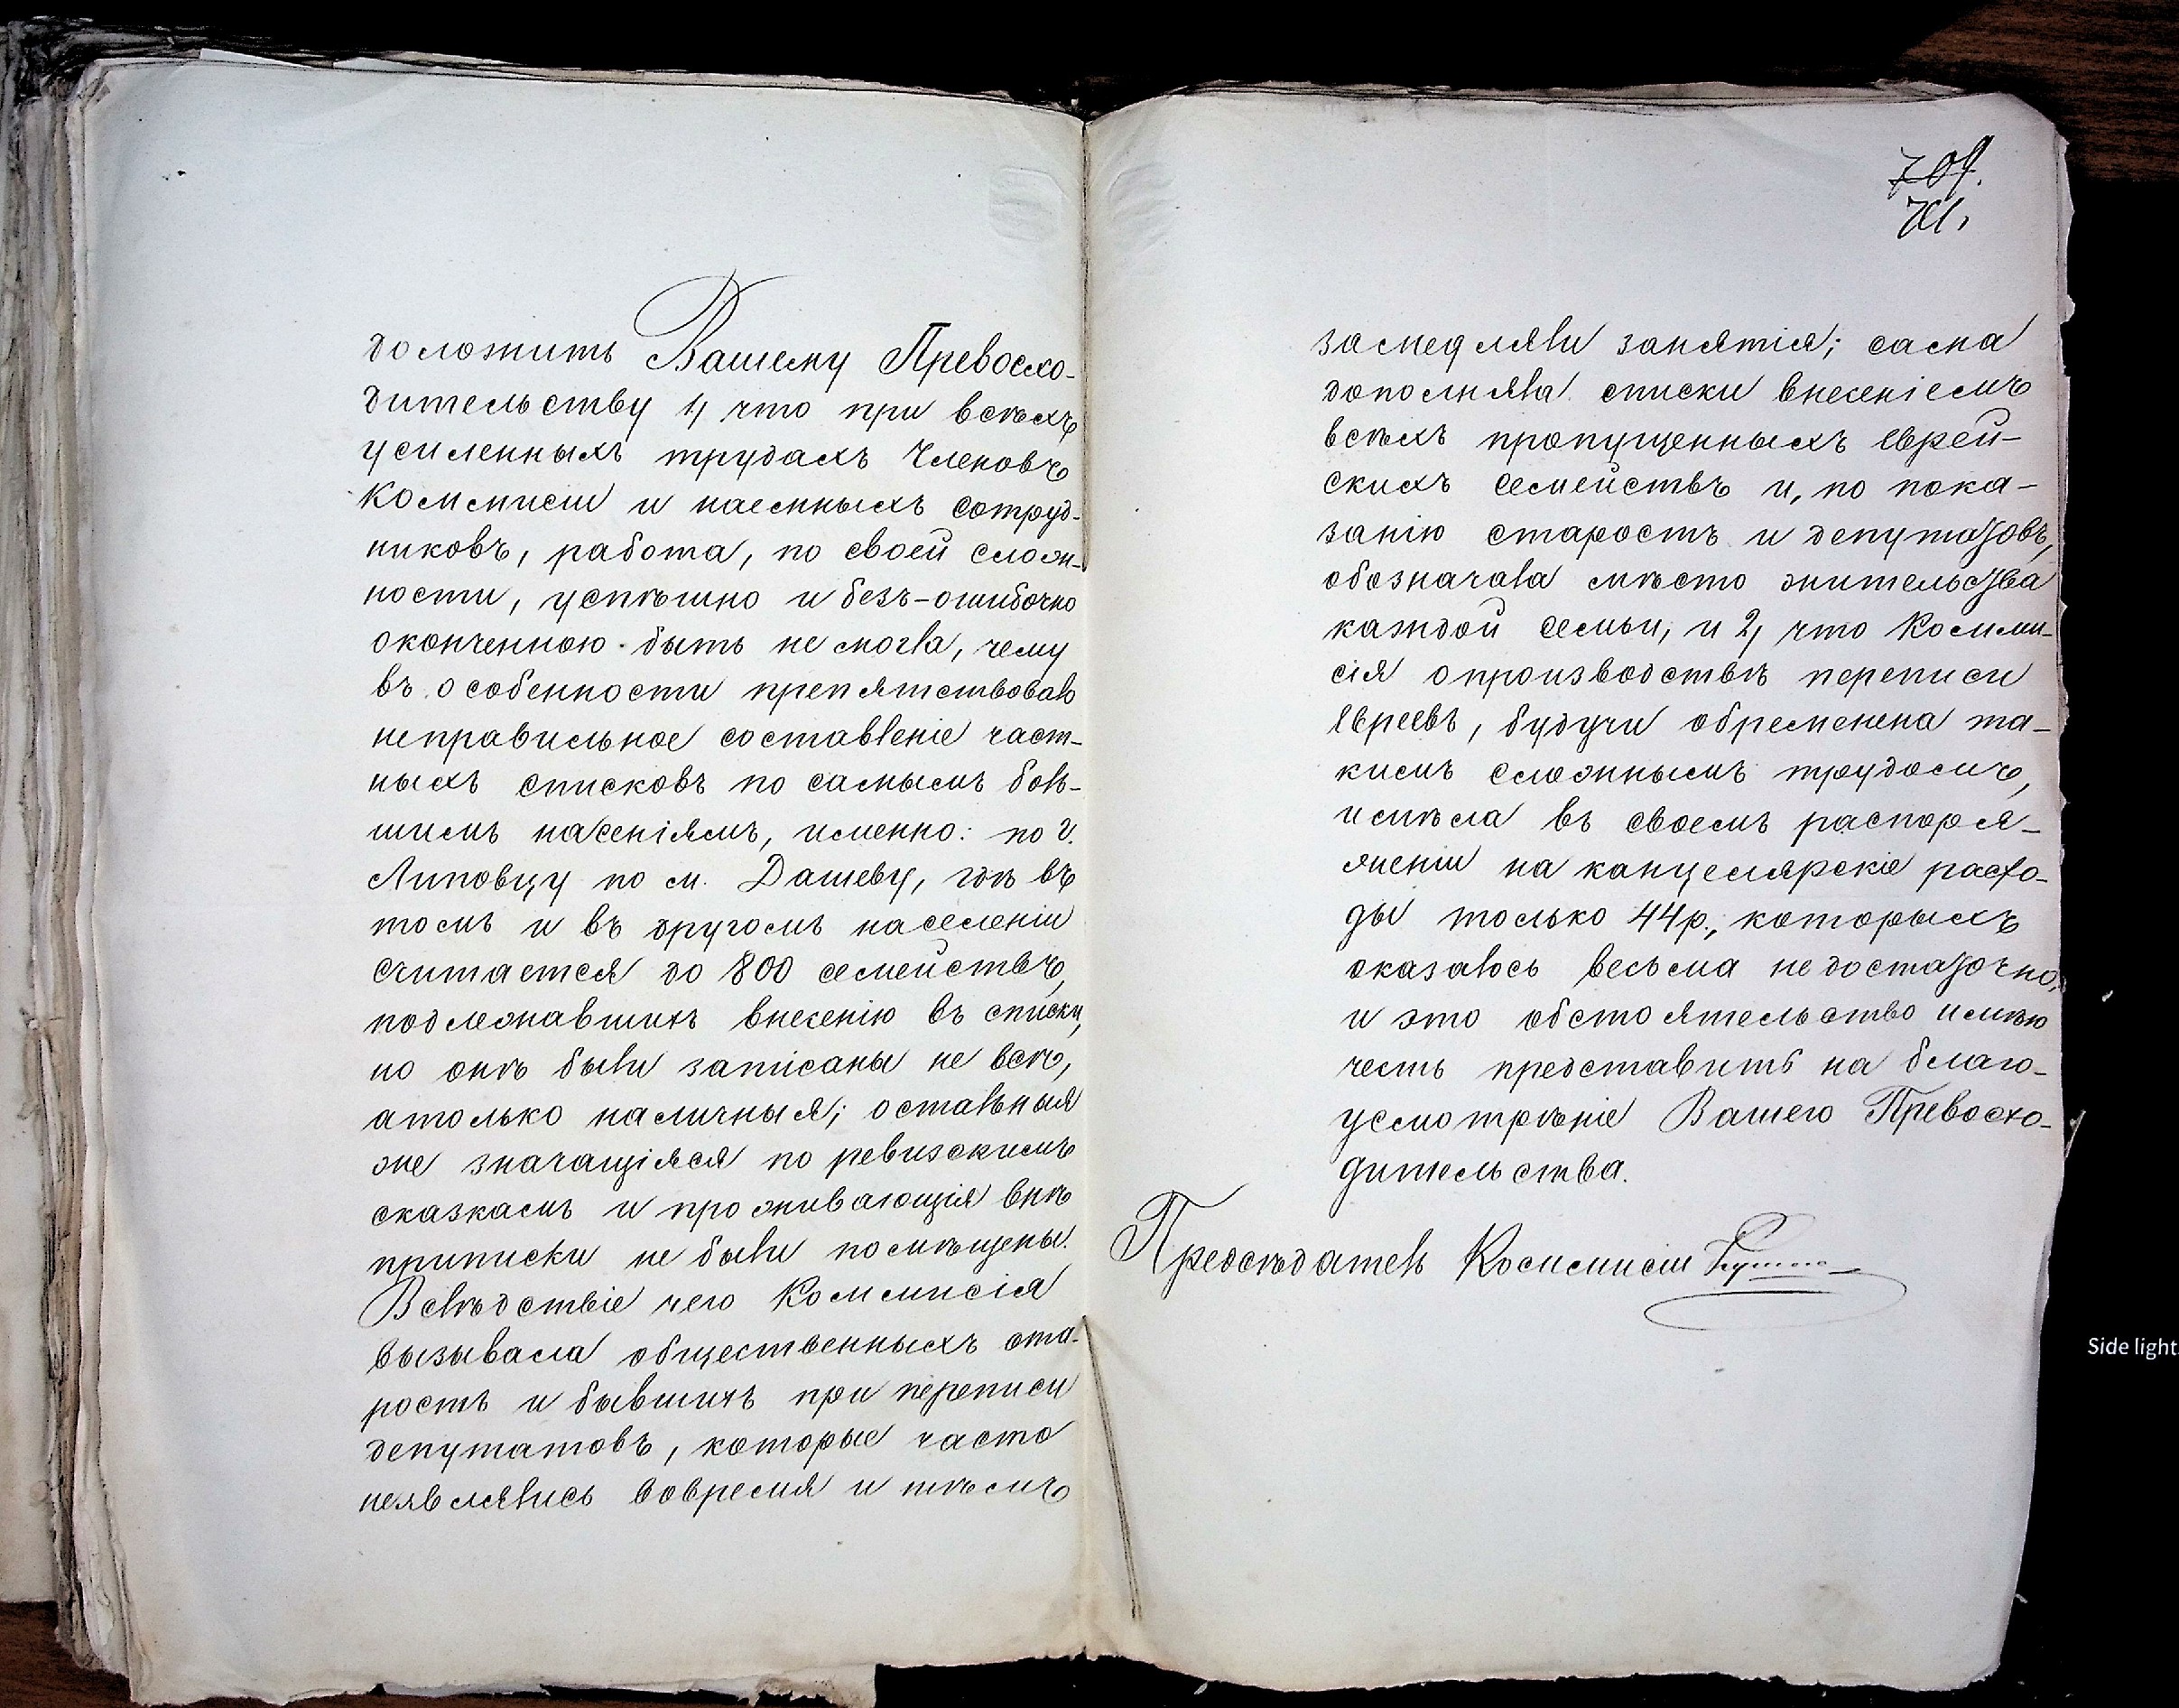 доложить Вашему Превосхо-
дительству 1, что при всѣхъ
усиленныхъ трудахъ Членовъ
Коммисіи и наемныхъ сотруд-
никовъ, работа, по своей слож-
ности, успѣшно и безъ-ошибочно
оконченною быть не могла, чему
въ особенности препятствовало
неправильное составленіе част-
ныхъ списковъ по самымъ боль-
шимъ населеніямъ, именно: по г.
Липовцу по м. Дашеву, гдѣ въ
томъ и въ другомъ населеніи
считается до 800 семействъ,
подлежавшихъ внесенію въ списки,
но онѣ были записаны не всѣ,
а только наличныя; остальныя
же значащіяся по ревизскимъ
сказкамъ и проживающія внѣ
приписки не были помѣщены.
Вслѣдствіе чего Коммисія
вызывала общественныхъ ста-
ростъ и бывшихъ при переписи
депутатовъ, которые часто
неявлялись вовремя и тѣмъ
709.
701.
замедляли занятія; сама
дополняла списки внесеніемъ
всѣхъ пропущенныхъ еврей-
скихъ семействъ и, по пока-
занію старостъ и депутатовъ,
обозначала мѣсто жительства
каждой семьи, и 2, что Комми-
сія о производствѣ переписи
Евреевъ, будучи обременена та-
кимъ сложнымъ трудомъ,
имѣла въ своемъ распоря-
женіи на канцелярскіе расхо-
ды только 44 р., которыхъ
оказалось весьма недостаточно,
и это обстоятельство имѣю
честь представить на благо-
усмотрѣніе Вашего Превосхо-
дительства.
Предсѣдатель Коммисіи
Side light